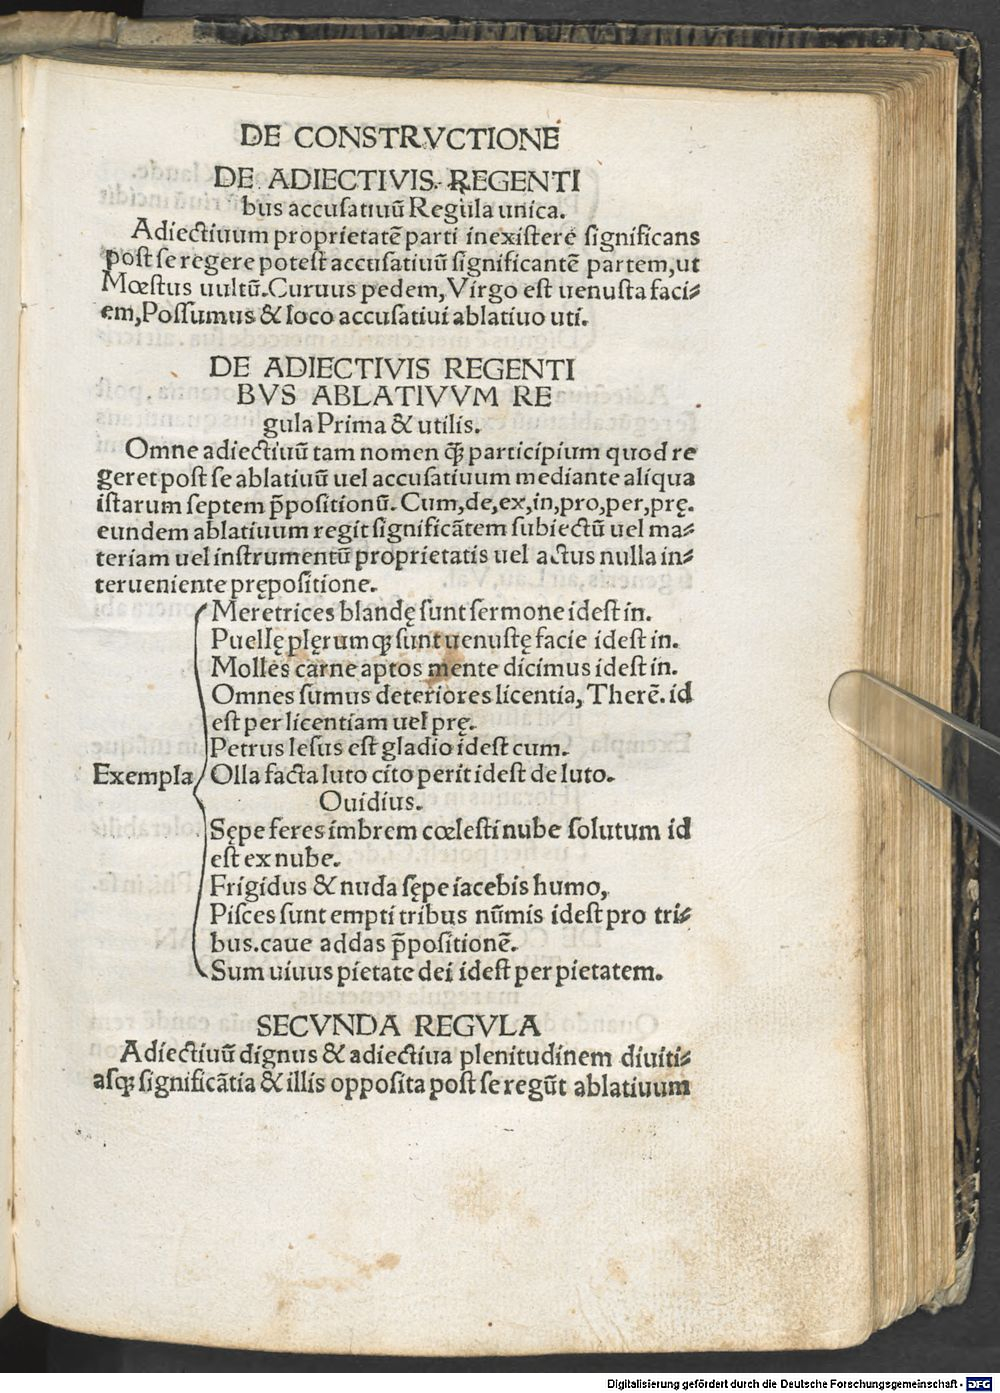 DE CONSTRVCTIONE
DE ADIECTIVIS REGENTI
bus accusatiuũ Regula unica.
Adiectiuum proprietatẽ parti inexistere significans
post se regere potest accusatiuũ significantẽ partem, ut
Mœstus uultũ. Curuus pedem, Virgo est uenusta faci⸗
em, Possumus & loco accusatiui ablatiuo uti.
DE ADIECTIVIS REGENTI
BVS ABLATIVVM RE
gula Prima & utilis.
Omne adiectiuũ tam nomen q̃ꝫ participium quod re
geret post se ablatiuũ uel accusatiuum mediante aliqua
istarum septem p̄positionũ. Cum, de, ex, in, pro, per, prę.
eundem ablatiuum regit significãtem subiectũ uel ma⸗
teriam uel instrumentũ proprietatis uel actus nulla in⸗
terueniente prępositione.
Meretrices blandę sunt sermone idest in.
Puellę plęrumqꝫ sunt uenustę facie idest in.
Molles carne aptos mente dicimus idest in.
Omnes sumus deteriores licentia, Therẽ. id
est per licentiam uel prę.
Petrus lesus est gladio idest cum.
Exempla Olla facta luto cito perit idest de luto.
Ouidius.
Sępe feres imbrem cœlesti nube solutum id
est ex nube.
Frigidus & nuda sępe iacebis humo,
Pisces sunt empti tribus nũmis idest pro tri⸗
bus. caue addas p̄positionẽ.
Sum uiuus pietate dei idest per pietatem.
SECVNDA REGVLA
Adiectiuũ dignus & adiectiua plenitudinem diuiti⸗
asqꝫ significãtia & illis opposita post se regũt ablatiuum
Digitalisierung gefördert durch die Deutsche Forschungsgemeinschaft - DFG